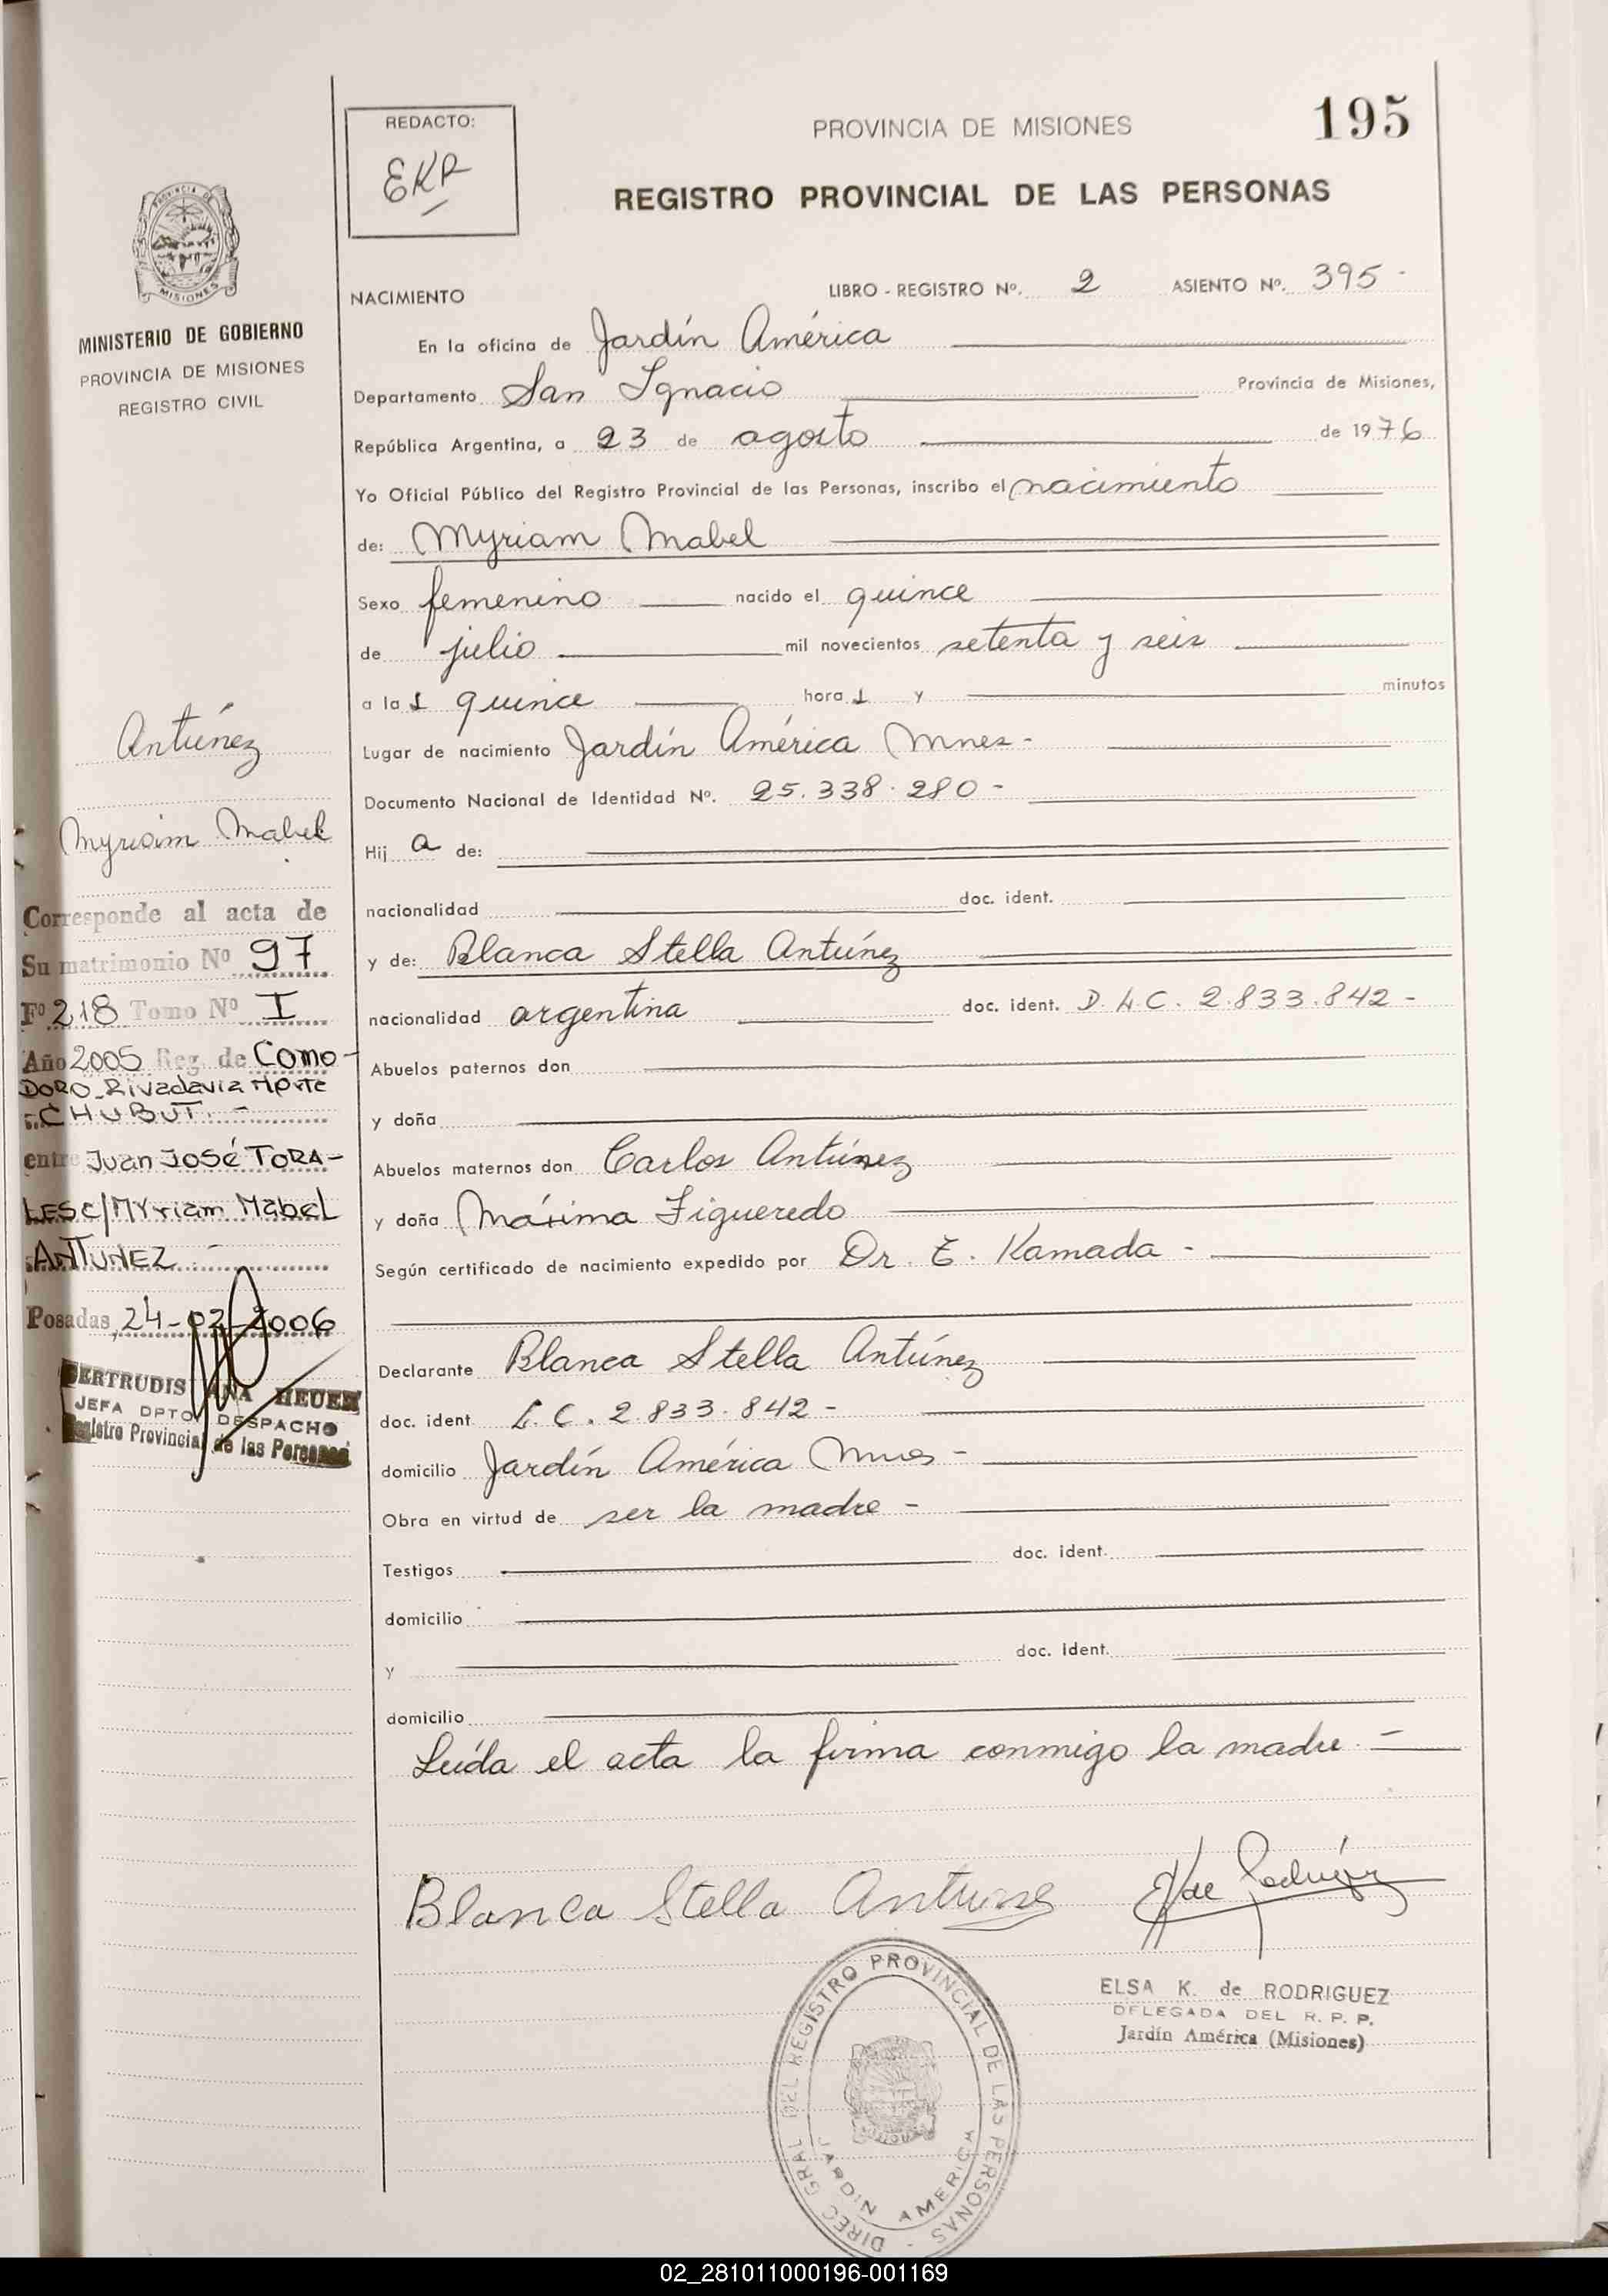 195
REDACTO:
EKR
PROVINCIA DE MISIONES
REGISTRO PROVINCIAL DE LAS PERSONAS
PROVINCIA DE
MISIONES
MINISTERIO DE GOBIERNO
PROVINCIA DE MISIONES
REGISTRO CIVIL
NACIMIENTO LIBRO - REGISTRO Nº. 2 ASIENTO Nº. 395-
En la oficina de Jardín América
Departamento San Ignacio Provincia de Misiones,
República Argentina, a 23 de agosto de 1976
Yo Oficial Público del Registro Provincial de las Personas, inscribo el nacimiento
de: Myriam Mabel
Sexo femenino nacido el quince
de julio mil novecientos setenta y seis
a las quince horas y minutos
Lugar de nacimiento Jardín América Mnes-
Documento Nacional de Identidad Nº. 25.338.280-
Hija de:
nacionalidad doc. ident.
y de: Blanca Stella Antúnez
nacionalidad argentina doc. ident. D.L.C. 2.833.842-
Abuelos paternos don
y doña
Abuelos maternos don Carlos Antúnez
y doña Máxima Figueredo
Según certificado de nacimiento expedido por Dr. E. Kamada -
Declarante Blanca Stella Antúnez
doc. ident L.C. 2.833.842-
domicilio Jardín América Mnes-
Obra en virtud de ser la madre-
Testigos doc. ident.
domicilio
y doc. ident.
domicilio
Leída el acta la firma conmigo la madre.=
Blanca Stella Antunez
ELSA K. de RODRIGUEZ
DELEGADA DEL R. P. P.
Jardín América (Misiones)
DIREC GRAL DEL REGISTRO PROVINCIAL DE LAS PERSONAS
JARDIN AMERICA
Antúnez
Myriam Mabel
Corresponde al acta de
Su matrimonio Nº 97
Fº 218 Tomo Nº I
Año 2005 Reg. de Como-
DORO Rivadavia Norte
CHUBUT.-
entre Juan José TORA-
LES c/ Myriam Mabel
ANTUNEZ.-
Posadas, 24-02-2006
GERTRUDIS ANA HEUER
JEFA DPTO DESPACHO
Registro Provincial de las Personas
02_281011000196-001169